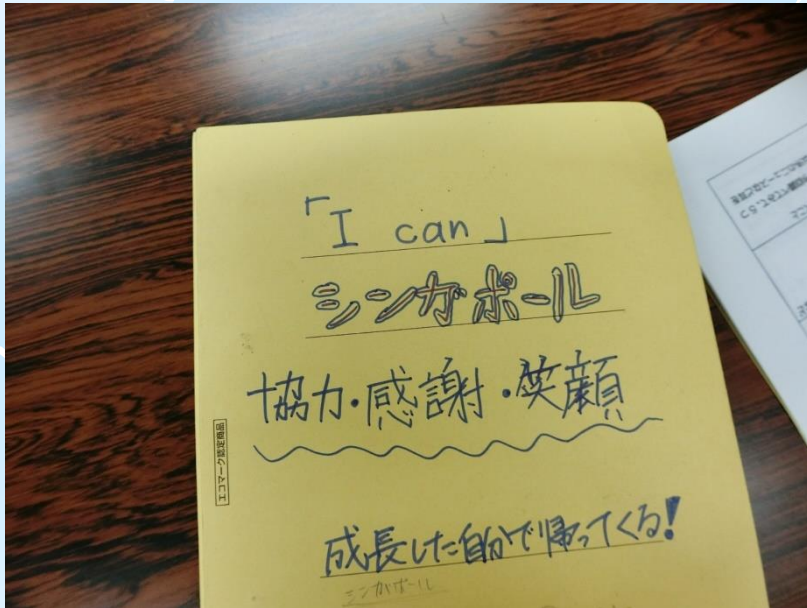 「I can」
シンガポール
協力・感謝・笑顔
エコマーク認定商品
成長した自分で帰ってくる!
シンガポール